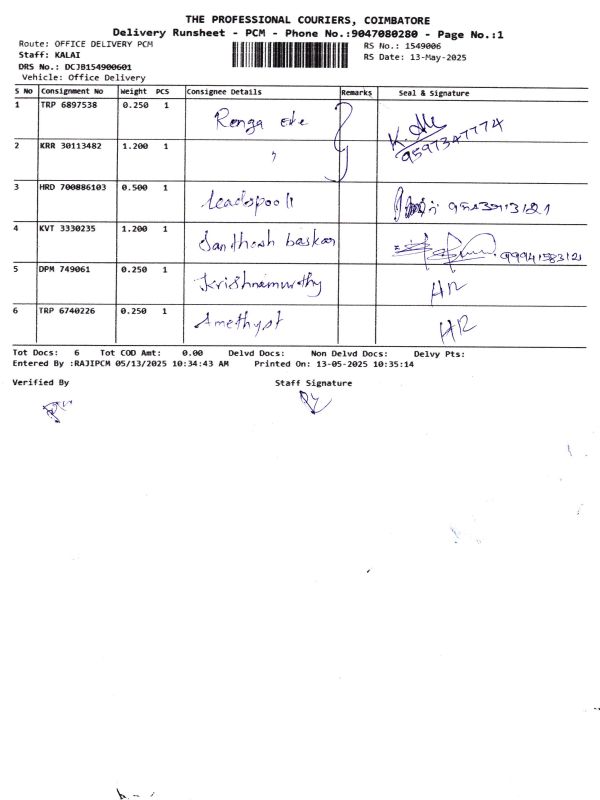 THE PROFESSIONAL COURIERS, COIMBATORE
Delivery Runsheet - PCM - Phone No.:9047080280 - Page No.:1
Route: OFFICE DELIVERY PCM
Staff: KALAI
DRS No.: DCJB154900601
Vehicle: Office Delivery
RS No.: 1549006
RS Date: 13-May-2025
S No Consignment No Weight PCS Consignee Details Remarks Seal & Signature
1 TRP 6897538 0.250 1 Renga
9597347774
2 KRR 30113482 1.200 1 "
3 HRD 700886103 0.500 1
4 KVT 3330235 1.200 1 Santhosh baskar
5 DPM 749061 0.250 1 Krishnamurthy HR
6 TRP 6740226 0.250 1 Amethyst HR
Tot Docs: 6 Tot COD Amt: 0.00 Delvd Docs: Non Delvd Docs: Delvy Pts:
Entered By :RAJIPCM 05/13/2025 10:34:43 AM Printed On: 13-05-2025 10:35:14
Verified By Staff Signature